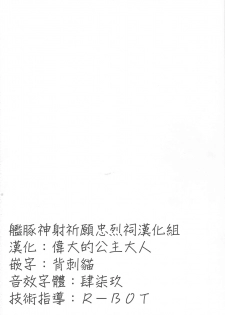 艦豚神射祈願忠烈祠漢化組
漢化：偉大的公主大人
嵌字：背刺貓
音效字體：肆柒玖
技術指導：R－BOT